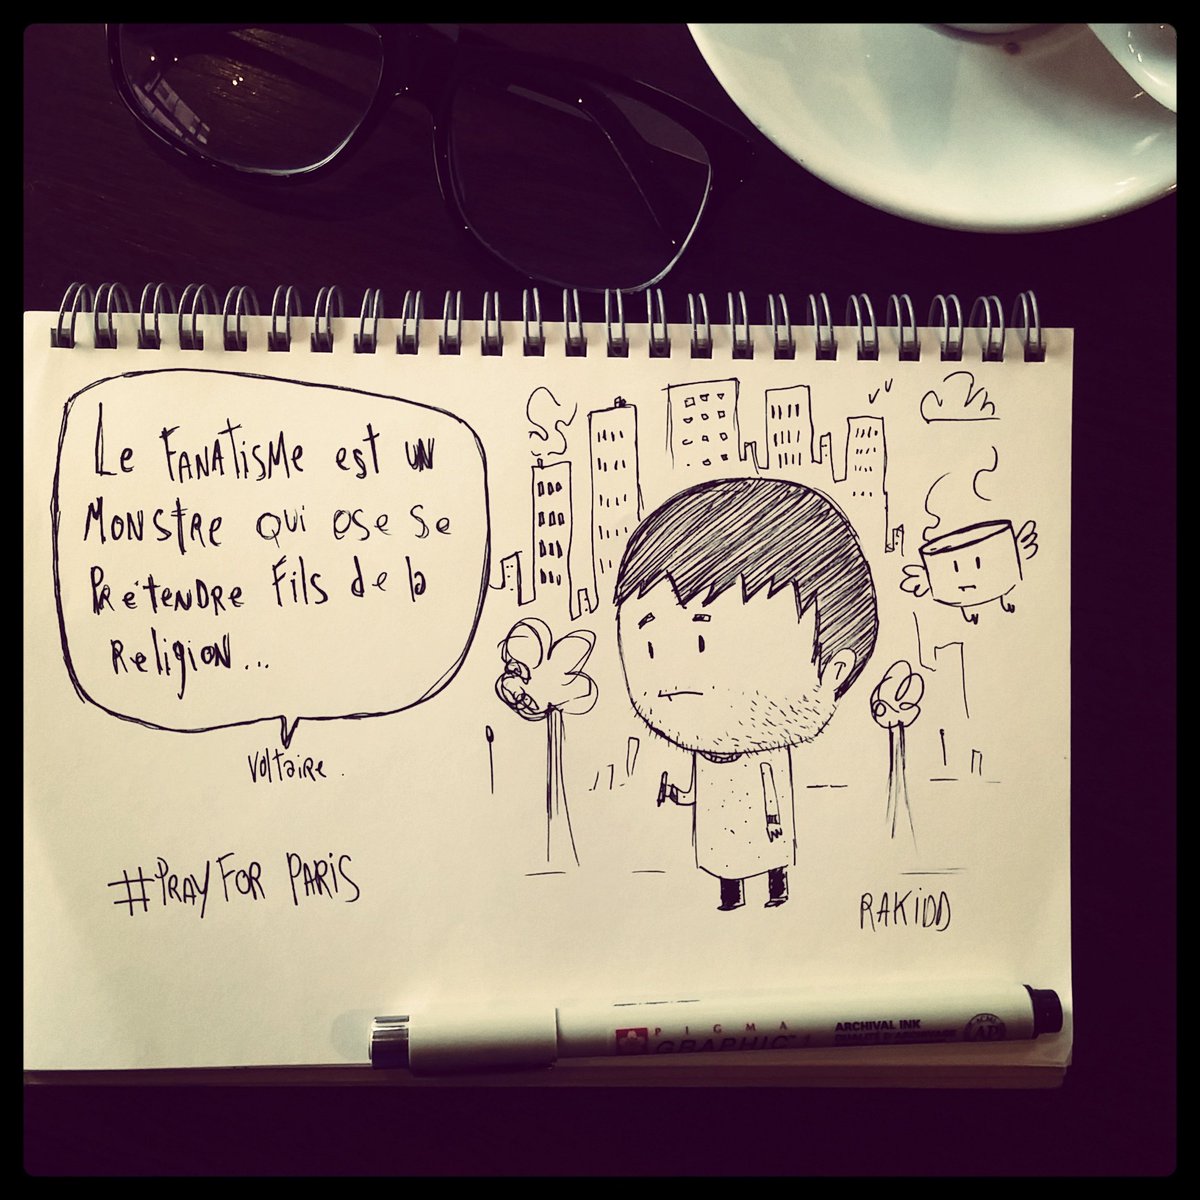 Le FANATISME est UN
MONSTRE QUi OSE Se
PRÉTENDRE Fils de la
Religion...
Voltaire.
#PRAY FOR PARIS
RAKIDD
PIGMA
GRAPHIC 1
ARCHIVAL INK
QUALITÉ D'ARCHIVAGE
AP